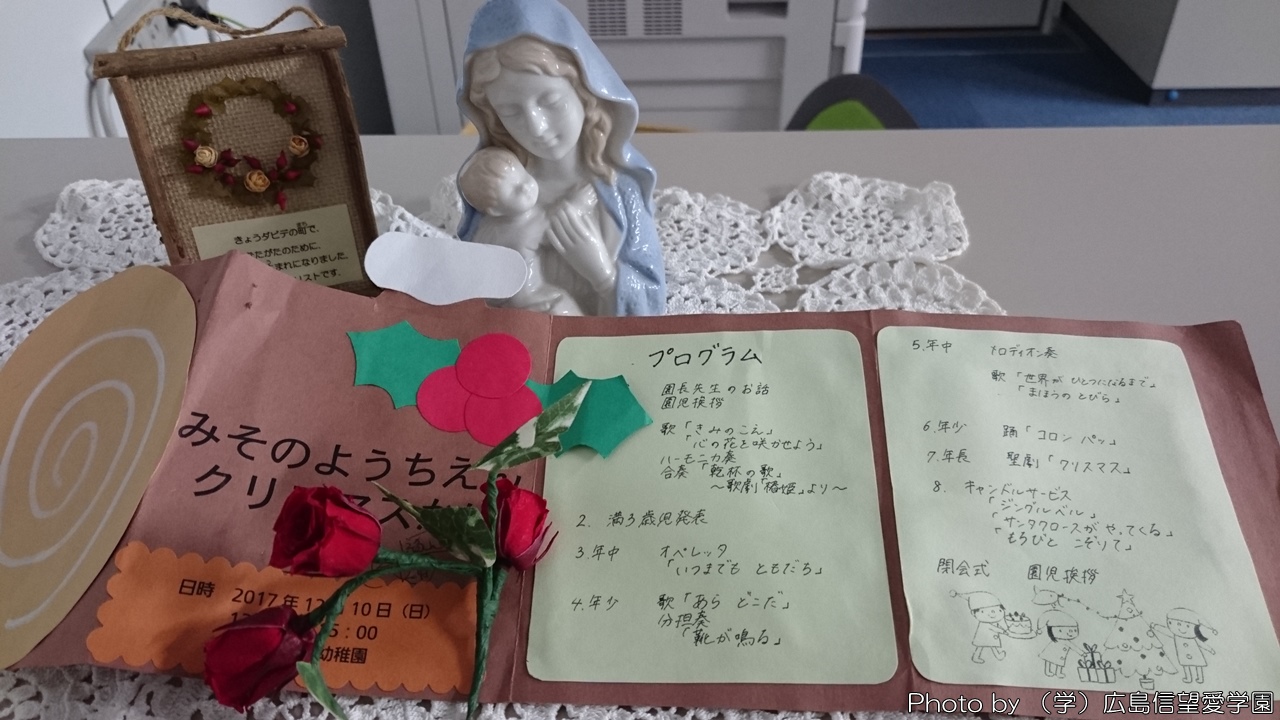 きょうダビデの町で、
たがたのために、
まれになりました。
リストです。
みそのようちえ
クリ
日時 2017年12 10日（日）
5：00
幼稚園
プログラム
園長先生のお話
園児挨拶
歌「きみのこえ」
「心の花を咲かせよう」
ハーモニカ奏
合奏「乾杯の歌」
～歌劇「椿姫」より～
2. 満3歳児発表
3.年中 オペレッタ
「いつまでも ともだち」
4.年少 歌「あら どこだ」
分担奏
「靴が鳴る」
5.年中 メロディオン奏
歌「世界が ひとつになるまで」
「まほうの とびら」
6.年少 踊「コロン パッ」
7.年長 聖劇「クリスマス」
8. キャンドルサービス
「ジングルベル」
「サンタクロースが やってくる」
もろびと こぞりて」
閉会式 園児挨拶
Photo by （学）広島信望愛学園